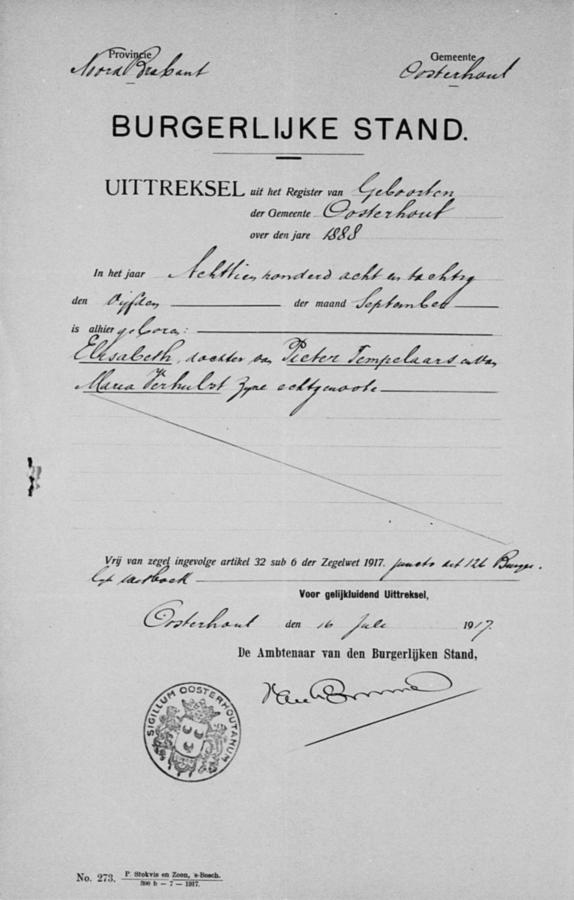 Provincie Gemeente
Noord Brabant Oosterhout
BURGERLIJKE STAND.
UITTREKSEL uit het Register van Geboorten
der Gemeente Oosterhout
over den jare 1888
In het jaar Achttien honderd acht en tachtig
den vijfden der maand September
is alhier geboren:
Elisabeth, dochter van Pieter Tempelaars en van
Maria Verhulst zijne echtgenoote
Vrij van zegel ingevolge artikel 32 sub 6 der Zegelwet 1917. juncto art 126 Burger
lijk wetboek
Voor gelijkluidend Uittreksel,
Oosterhout den 16 Juli 1917.
De Ambtenaar van den Burgerlijken Stand,
SIGILLUM OOSTERHOUTANUM
No. 273. P. Stokvis en Zoon, 's-Bosch.
300 b — 7 — 1917.